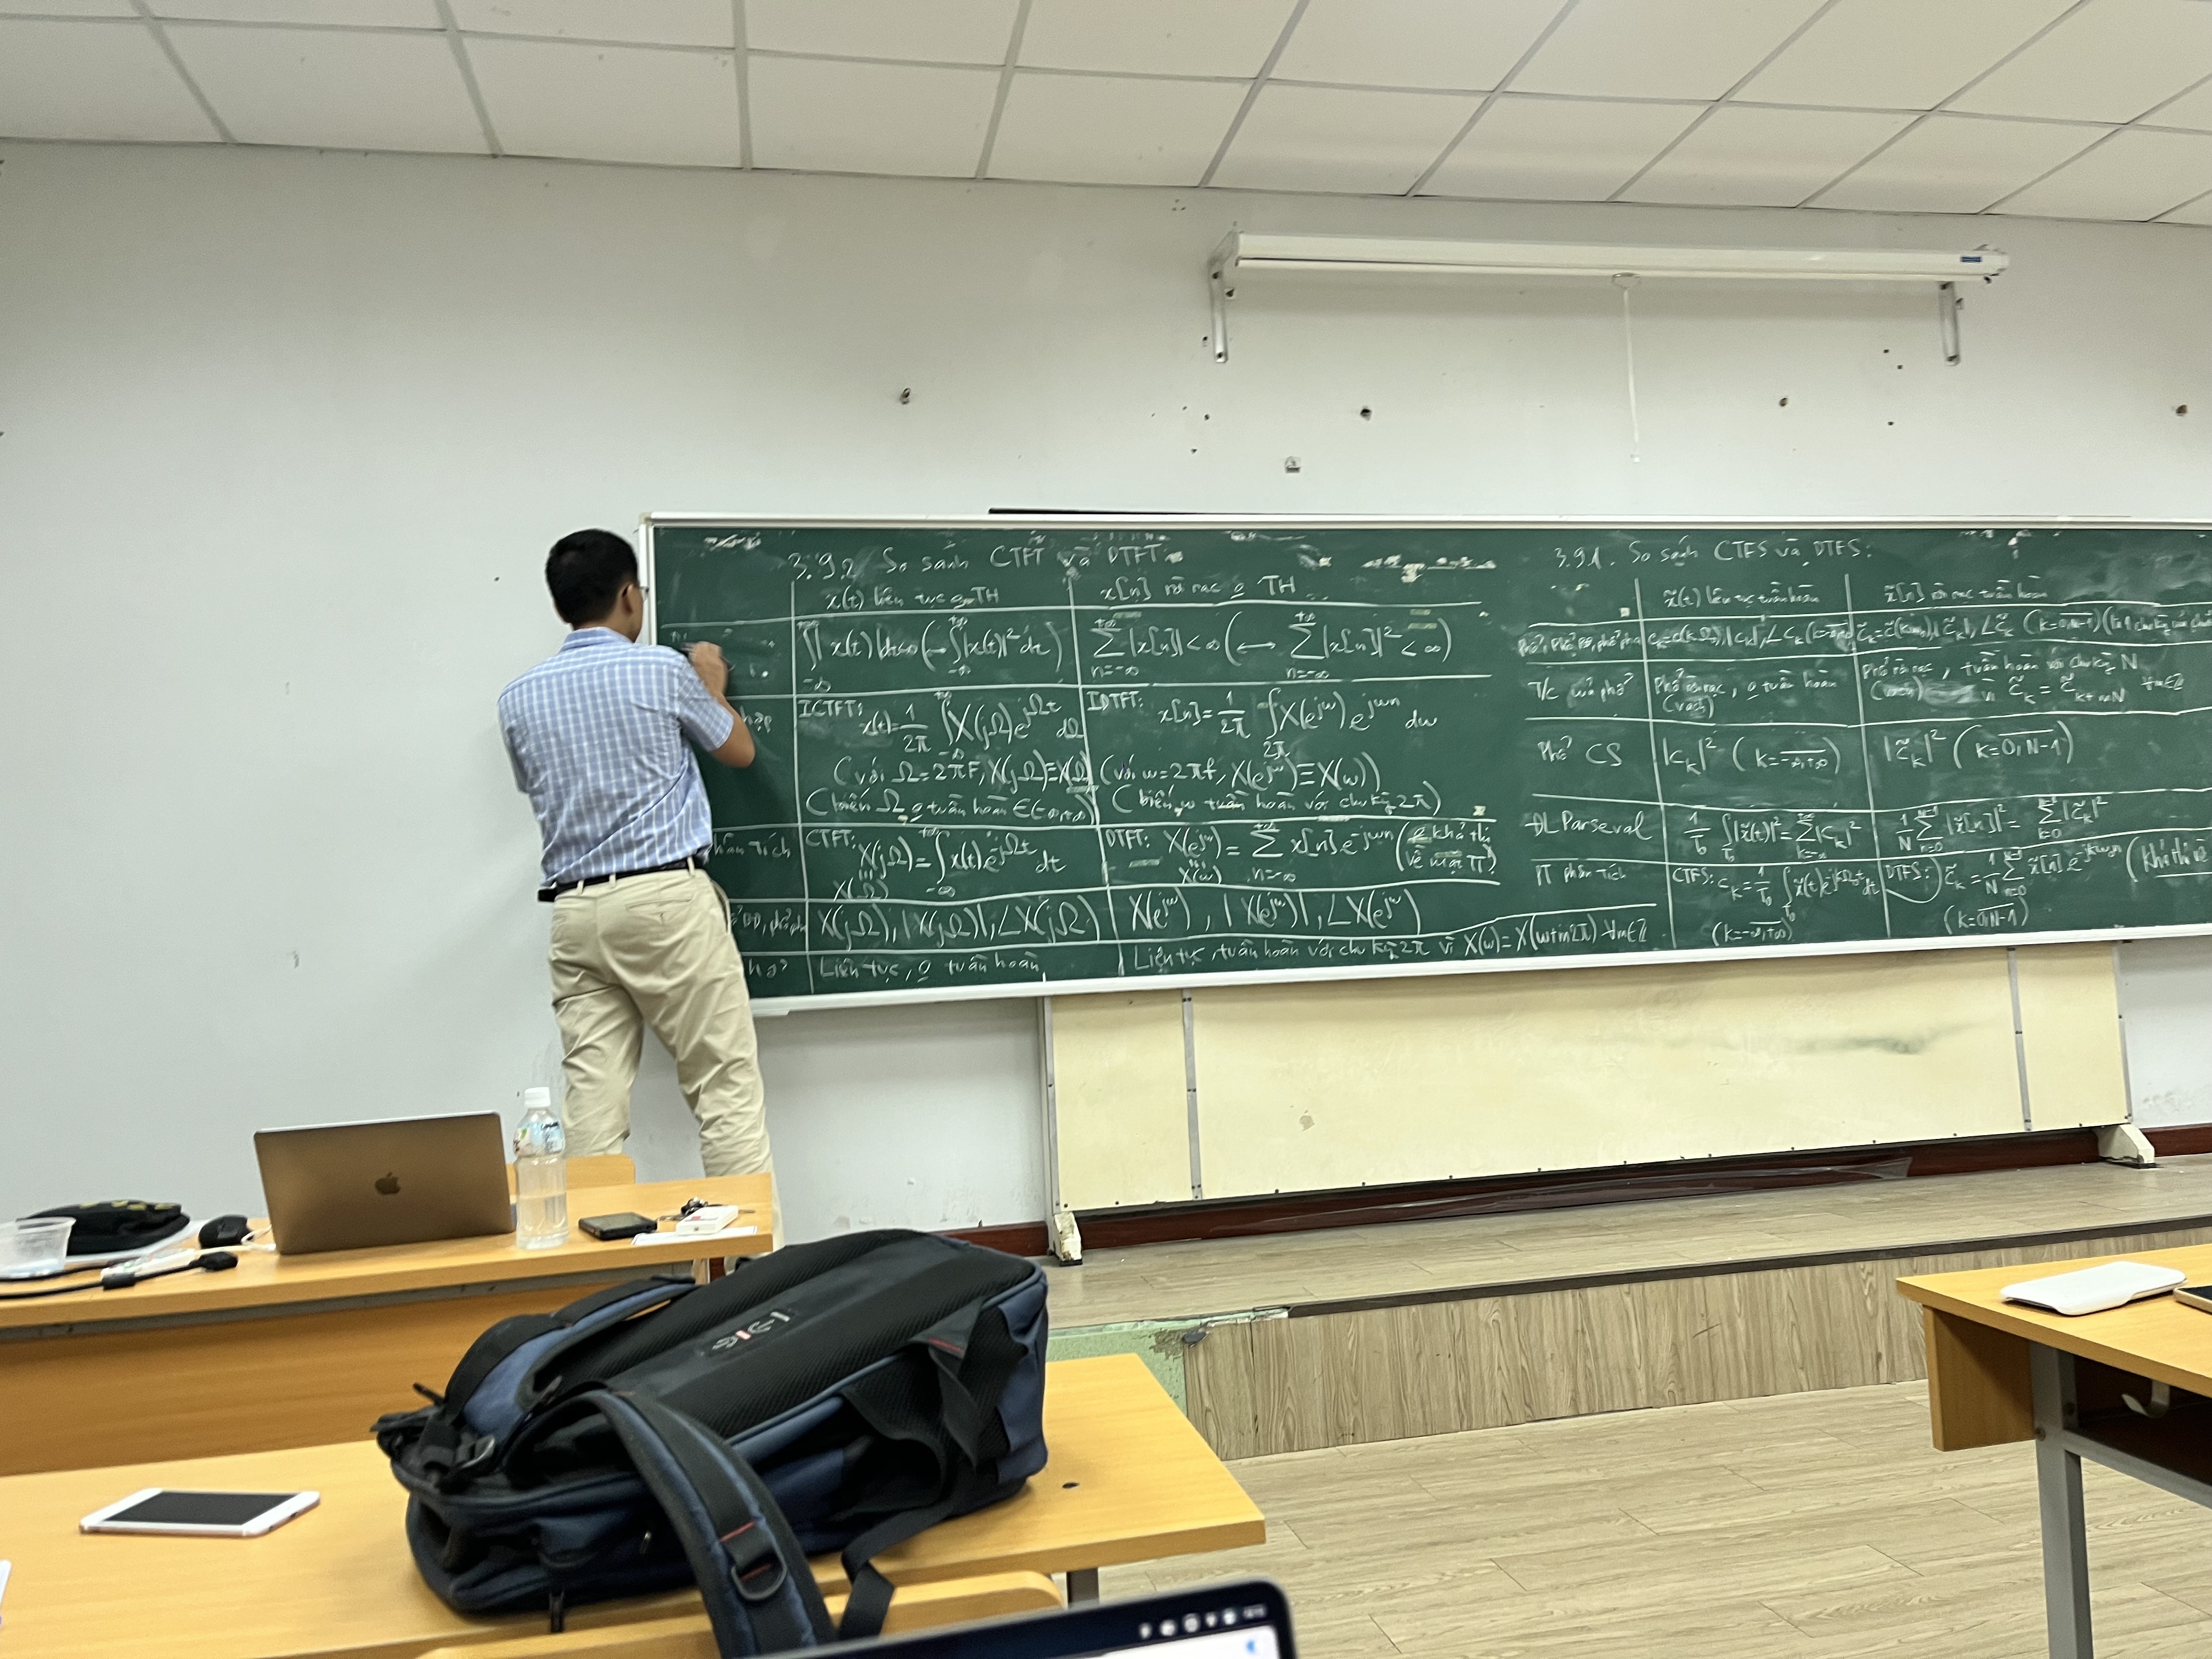 3.9.2 So sánh CTFT và DTFT
x(t) liên tục o TH
x[n] rời rạc o TH
∫|x(t)|dt<∞ (← ∫|x(t)|² dt)
∑|x[n]| < ∞ (← ∑|x[n]|² < ∞)
+∞
n=-∞
ICTFT: x(t) = 1/2π ∫X(jΩ)e^{jΩt} dΩ
(với Ω=2πF, X(jΩ)≡X(Ω)
(biến Ω o tuần hoàn ∈(-∞,+∞))
IDTFT: x[n] = 1/2π ∫X(e^{jω})e^{jωn} dω
2π
(với ω=2πf, X(e^{jω})≡X(ω))
(biến ω tuần hoàn với chu kỳ 2π)
CTFT: X(jΩ) = ∫x(t)e^{-jΩt} dt
X(Ω)
DTFT: X(e^{jω}) = ∑ x[n]e^{-jωn} (o khả thi
về mặt TT)
X(ω) n=-∞
X(jΩ), |X(jΩ)|, ∠X(jΩ)
X(e^{jω}), |X(e^{jω})|, ∠X(e^{jω})
Liên tục, o tuần hoàn
Liên tục, tuần hoàn với chu kỳ 2π vì X(ω)=X(ω+m2π) ∀m∈Z
3.9.1. So sánh CTFS và DTFS:
x̃(t) liên tục tuần hoàn
x̃[n] rời rạc tuần hoàn
T/c của phổ
Phổ rời rạc, o tuần hoàn
(vạch)
Phổ rời rạc, tuần hoàn với chu kỳ N
(vạch) vì c̃_k = c̃_{k+mN} ∀m∈Z
Phổ CS
|c_k|² (k=-∞,+∞)
|c̃_k|² (k=0,N-1)
ĐL Parseval
1/T₀ ∫|x̃(t)|² = ∑|c_k|²
T₀ k=-∞
1/N ∑|x̃[n]|² = ∑|c̃_k|²
N-1 n=0 k=0
TT phân tích
CTFS: c_k = 1/T₀ ∫x̃(t)e^{-jkΩ₀t}dt
(k=-∞,+∞)
DTFS: c̃_k = 1/N ∑ x̃[n]e^{-jkω₀n} (khả thi về
(k=0,N-1)